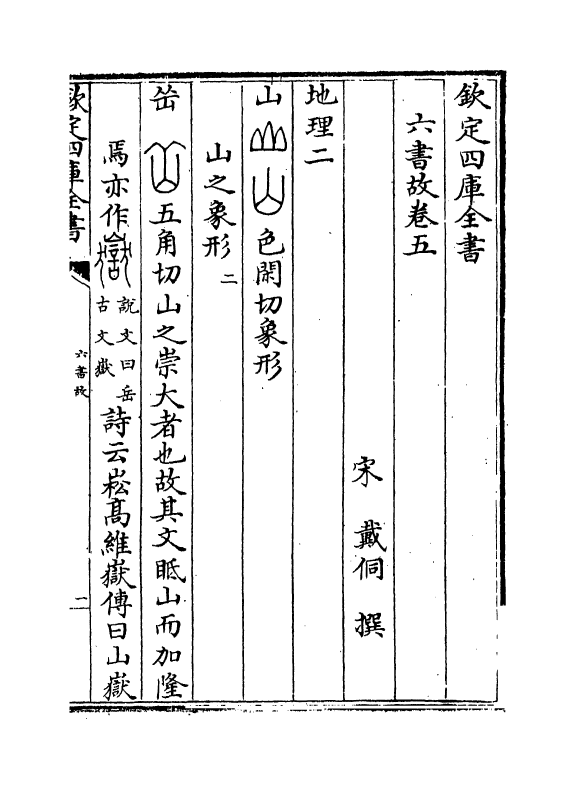 欽定四庫全書
六書故卷五
宋 戴侗 撰
地理二
山 色閑切象形
山之象形二
𡶳 五角切山之崇大者也故其文眡山而加隆
焉亦作 說文曰岳古文嶽 詩云崧高維嶽傳曰山嶽
欽定四庫全書
六書故
一